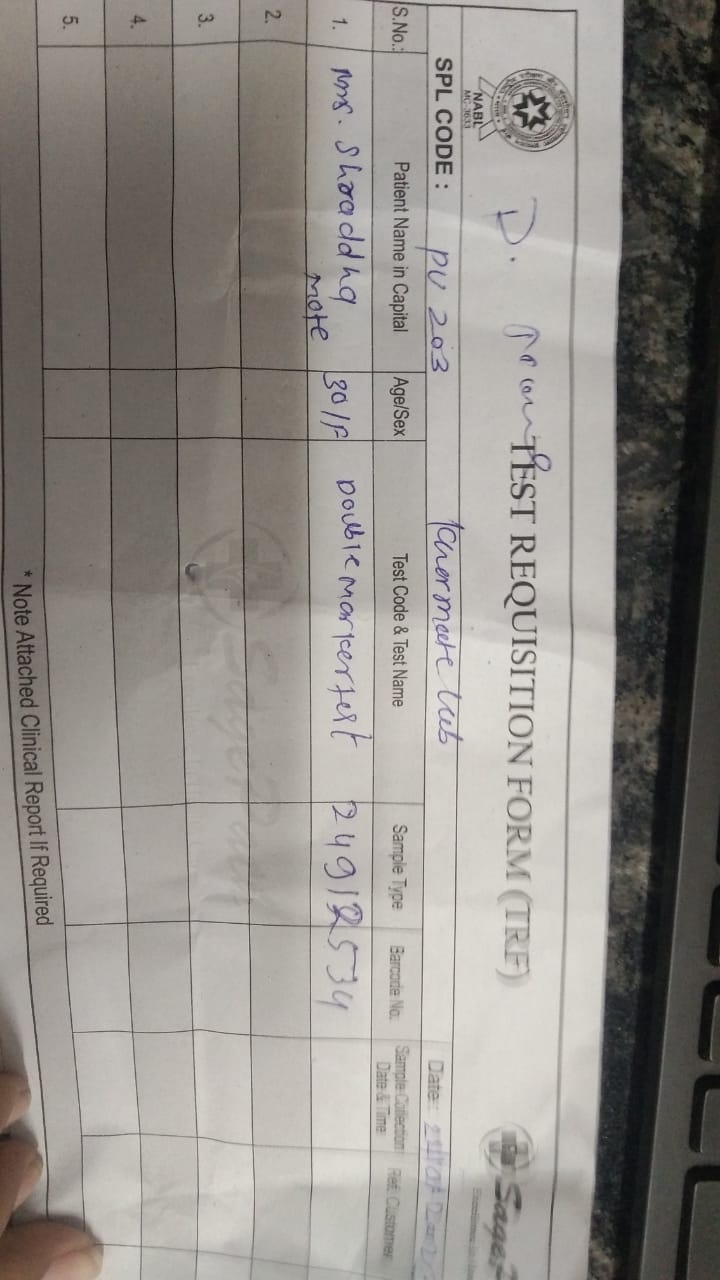 NABL
MC-3633
D.
TEST REQUISITION FORM (TRF)
Sage
SPL CODE : PU 203
Date:
S.No.: Patient Name in Capital Age/Sex Test Code & Test Name Sample Type Barcode No: Sample Collection Date & Time Ref. Customer
1. Mrs. Shraddha Mote 30/F Double Marker test 24912534
2.
3.
4.
5.
* Note Attached Clinical Report If Required